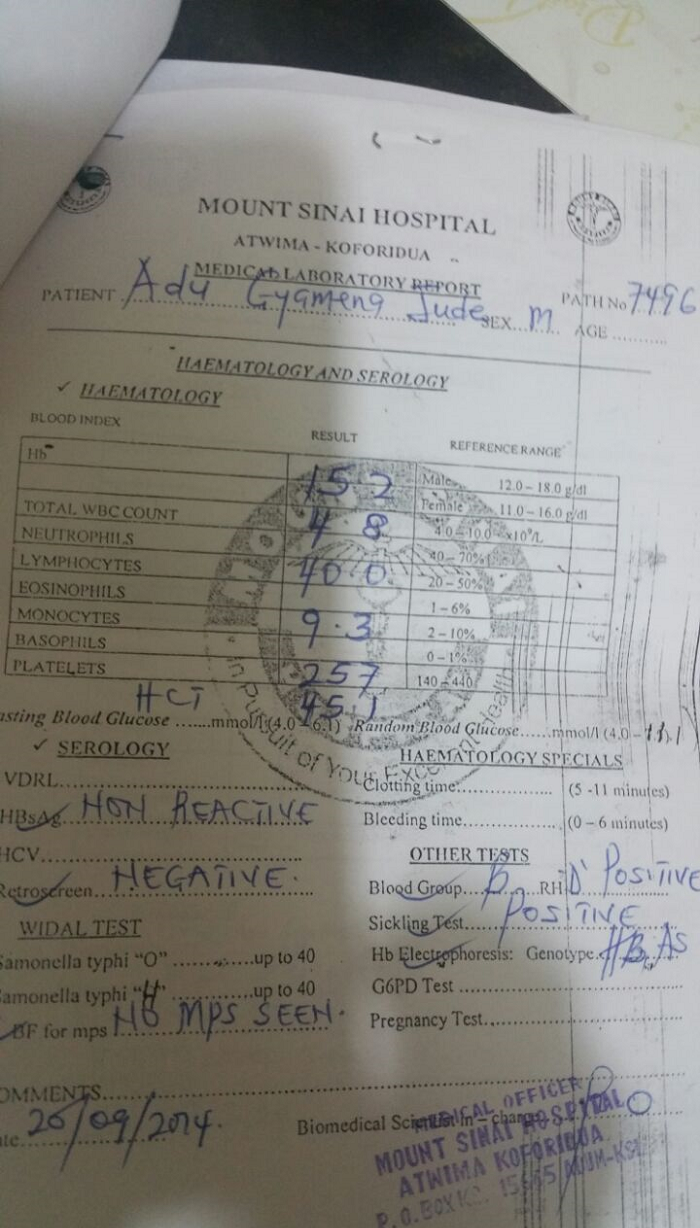 MOUNT SINAI HOSPITAL
ATWIMA - KOFORIDUA
MEDICAL LABORATORY REPORT
PATIENT Adu Gyameng Jude SEX M PATH No 7496
AGE
HAEMATOLOGY AND SEROLOGY
✓ HAEMATOLOGY
BLOOD INDEX RESULT REFERENCE RANGE
Hb 15.2 Male 12.0 – 18.0 g/dl
Female 11.0 – 16.0 g/dl
TOTAL WBC COUNT 4.8 4.0 – 10.0 x10⁹/L
NEUTROPHILS 40 – 70%
LYMPHOCYTES 40.0 20 – 50%
EOSINOPHILS 1 – 6%
MONOCYTES 9.3 2 – 10%
BASOPHILS 0 – 1%
PLATELETS 257 140 – 440
HCT 45.1
asting Blood Glucose ......mmol/l (4.0 – 6.1) Random Blood Glucose......mmol/l (4.0 – 11.1
✓ SEROLOGY
HAEMATOLOGY SPECIALS
VDRL
Clotting time (5 -11 minutes)
HBsAg NON REACTIVE
Bleeding time (0 – 6 minutes)
HCV
OTHER TESTS
Retroscreen NEGATIVE.
Blood Group B RH 'D' POSITIVE
WIDAL TEST
Sickling Test POSITIVE
Samonella typhi "O" up to 40
Hb Electrophoresis: Genotype HB AS
Samonella typhi "H" up to 40
G6PD Test
BF for mps NO MPS SEEN.
Pregnancy Test
OMMENTS
26/09/2014.
Biomedical Scientist In – charge
MEDICAL OFFICER
MOUNT SINAI HOSPITAL
ATWIMA KOFORIDUA
P.O.BOX